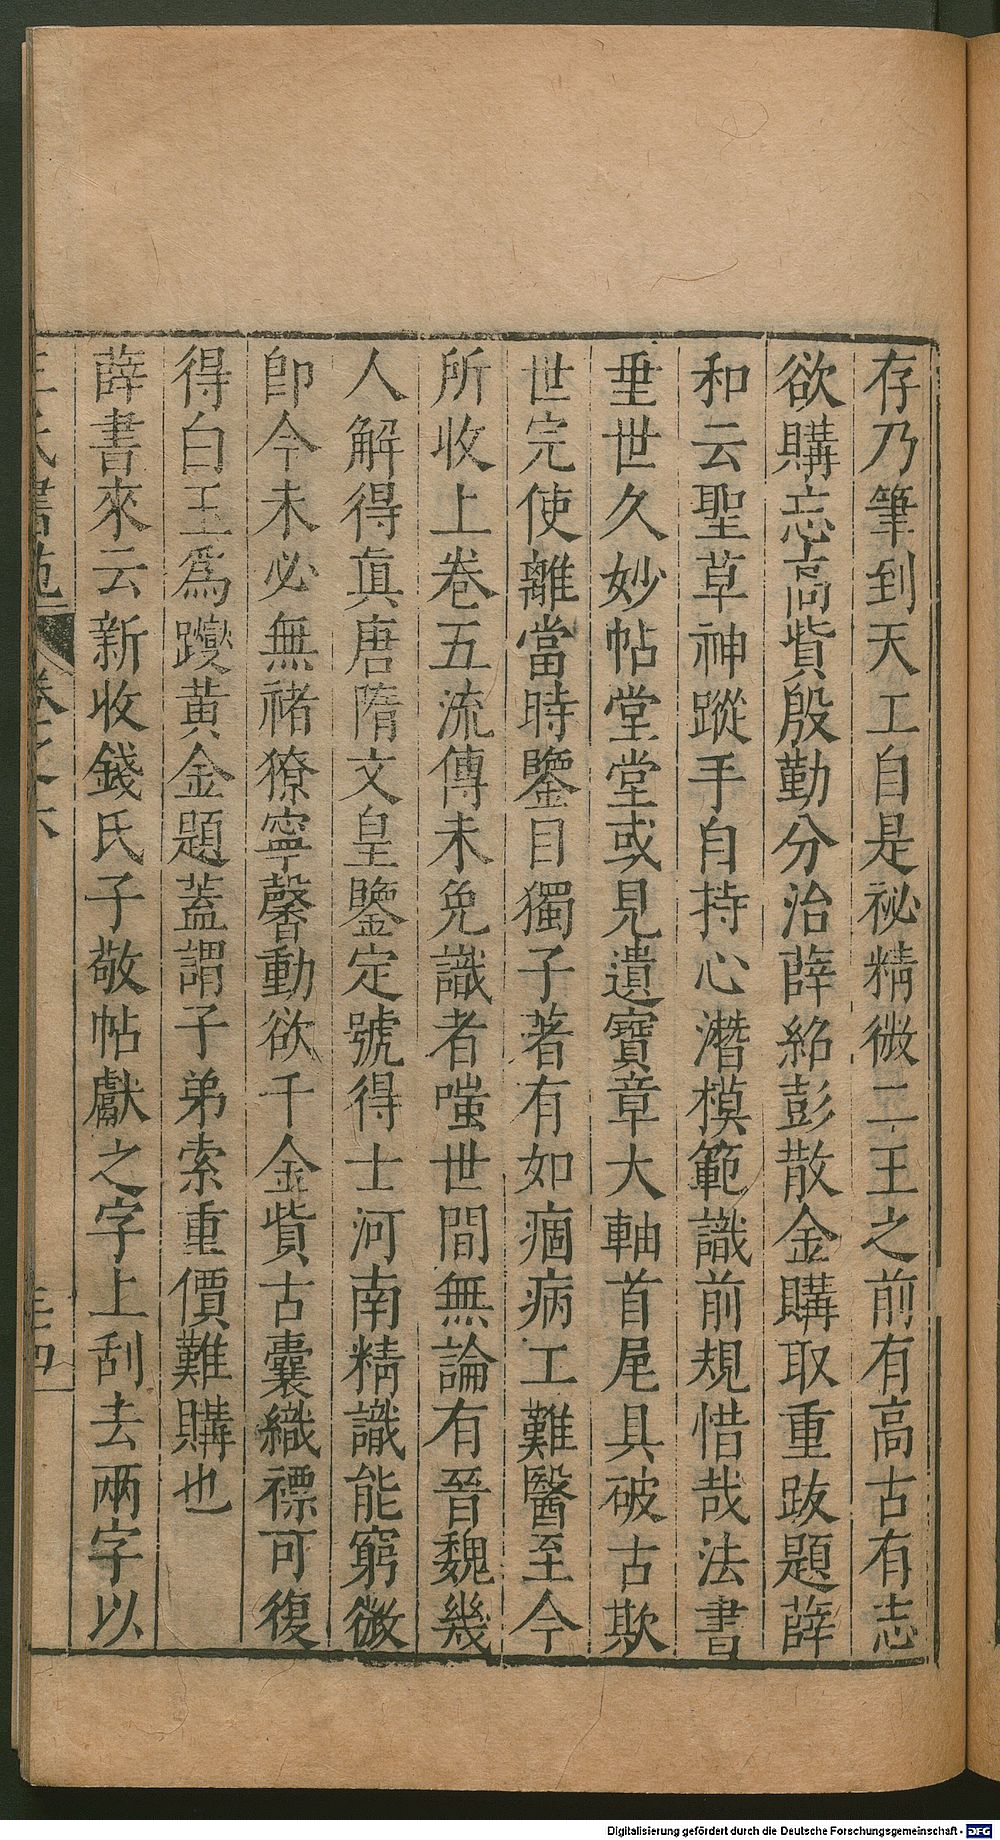 存乃筆到天工自是祕精微二王之前有高古有志
欲購忘高貲殷勤分治薛紹彭散金購取重跋題薛
和云聖草神蹤手自持心潛模範識前規惜哉法書
垂世久妙帖堂堂或見遺寶章大軸首尾具破古欺
世完使離當時鑒目獨子著有如痼病工難醫至今
所收上卷五流傳未免識者嗤世間無論有晉魏幾
人解得真唐隋文皇鑒定號得士河南精識能窮微
即今未必無褚獠寧馨動欲千金貲古囊織褾可復
得白玉為躞黃金題蓋謂子弟索重價難購也
薛書來云新收錢氏子敬帖獻之字上刮去兩字以
王氏書苑 卷之六 三四
Digitalisierung gefördert durch die Deutsche Forschungsgemeinschaft - DFG